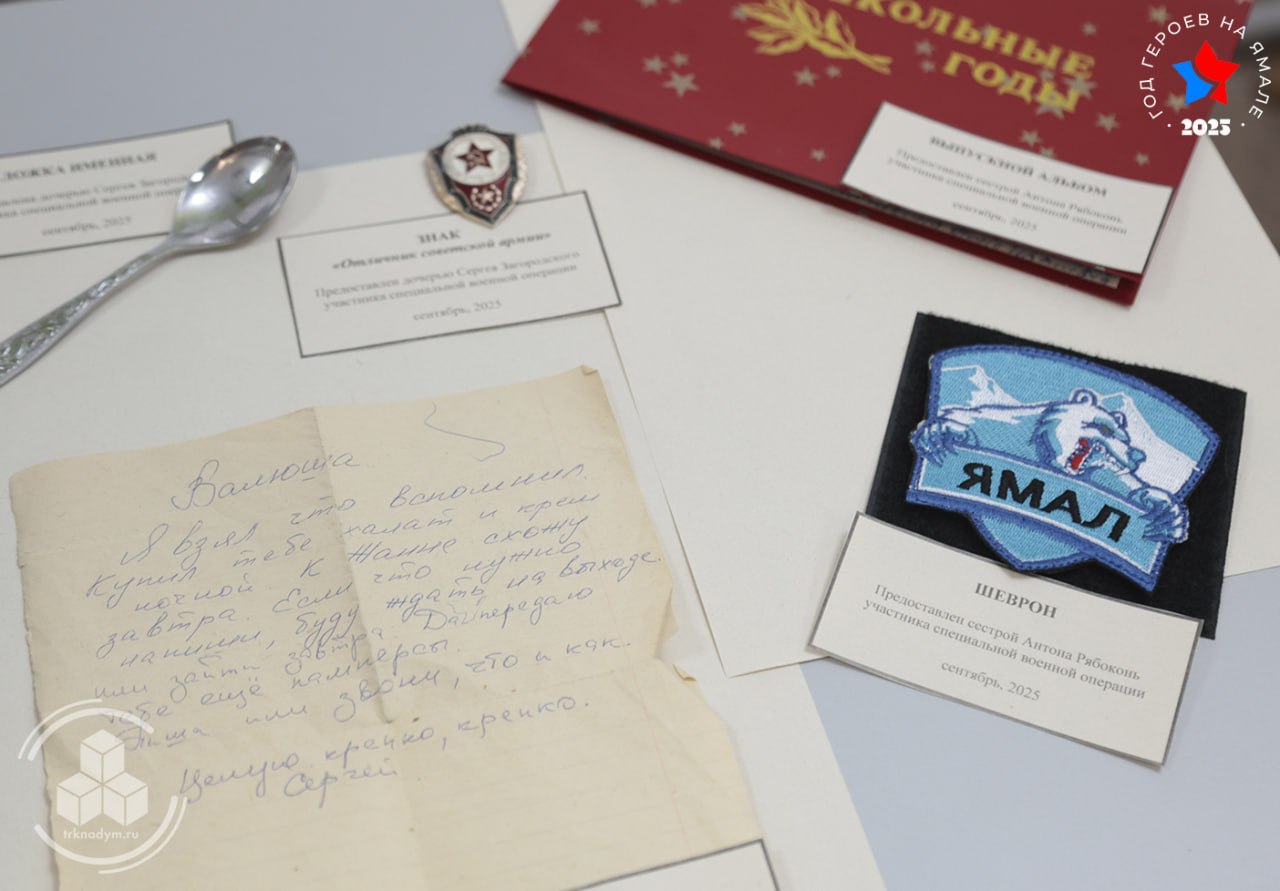 ГОД ГЕРОЕВ НА ЯМАЛЕ
2025
ШКОЛЬНЫЕ
ГОДЫ
ВЫПУСКНОЙ АЛЬБОМ
Предоставлен сестрой Антона Рябоконь
участника специальной военной операции
сентябрь, 2025
ЛОЖКА ИМЕННАЯ
дочерью Сергея
специальной военной
сентябрь, 2025
ЗНАК
«Отличник советской армии»
Предоставлен дочерью Сергея Загородского
участника специальной военной операции
сентябрь, 2025
ЯМАЛ
ШЕВРОН
Предоставлен сестрой Антона Рябоконь
участника специальной военной операции
сентябрь, 2025
Валюша
Я взял что вспомнил.
Купил тебе халат и крем
ночной. К Жанне схожу
завтра. Если что нужно
напиши, буду ждать на выходе.
или зайти завтра. Дай передаю
тебе ещё памперсы.
Пиши или звони, что и как.
Целую крепко, крепко.
Сергей
trknadym.ru